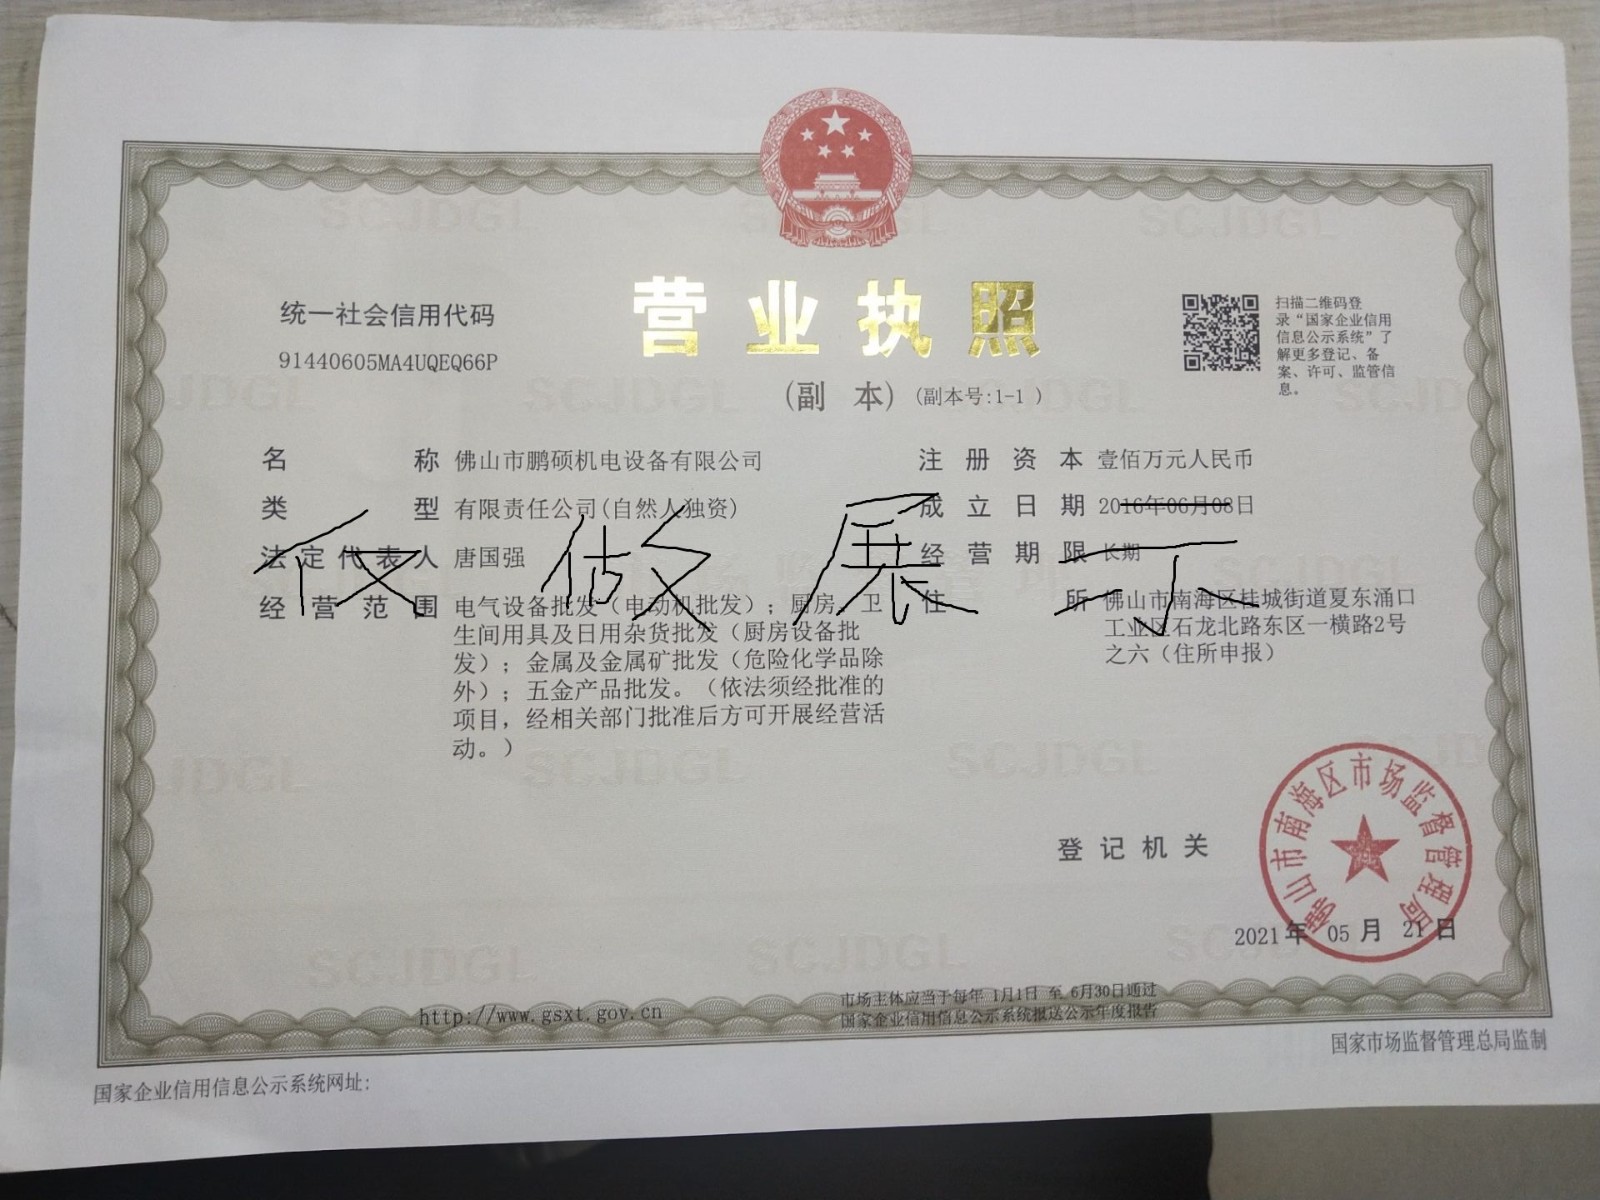 统一社会信用代码
91440605MA4UQEQ66P
营业执照
(副 本) (副本号:1-1 )
扫描二维码登
录“国家企业信用
信息公示系统”了
解更多登记、备
案、许可、监管信
息。
名 称 佛山市鹏硕机电设备有限公司
类 型 有限责任公司(自然人独资)
法定代表人 唐国强
经营范围 电气设备批发（电动机批发）；厨房、卫
生间用具及日用杂货批发（厨房设备批
发）；金属及金属矿批发（危险化学品除
外）；五金产品批发。（依法须经批准的
项目，经相关部门批准后方可开展经营活
动。）
注册资本 壹佰万元人民币
成立日期 2016年06月08日
经营期限 长期
住 所 佛山市南海区桂城街道夏东涌口
工业区石龙北路东区一横路2号
之六（住所申报）
仅做展示
登记机关
佛山市南海区市场监督管理局
2021年 05月 21日
http://www.gsxt.gov.cn
市场主体应当于每年 1月1日 至 6月30日通过
国家企业信用信息公示系统报送公示年度报告
国家企业信用信息公示系统网址:
国家市场监督管理总局监制
SCJDGL
SCJDGL
JDGL
SCJDGL
SCJD
SCJDGL
JDGL
SCJDGL
SCJDGL
SCJDGL
SCJDGL